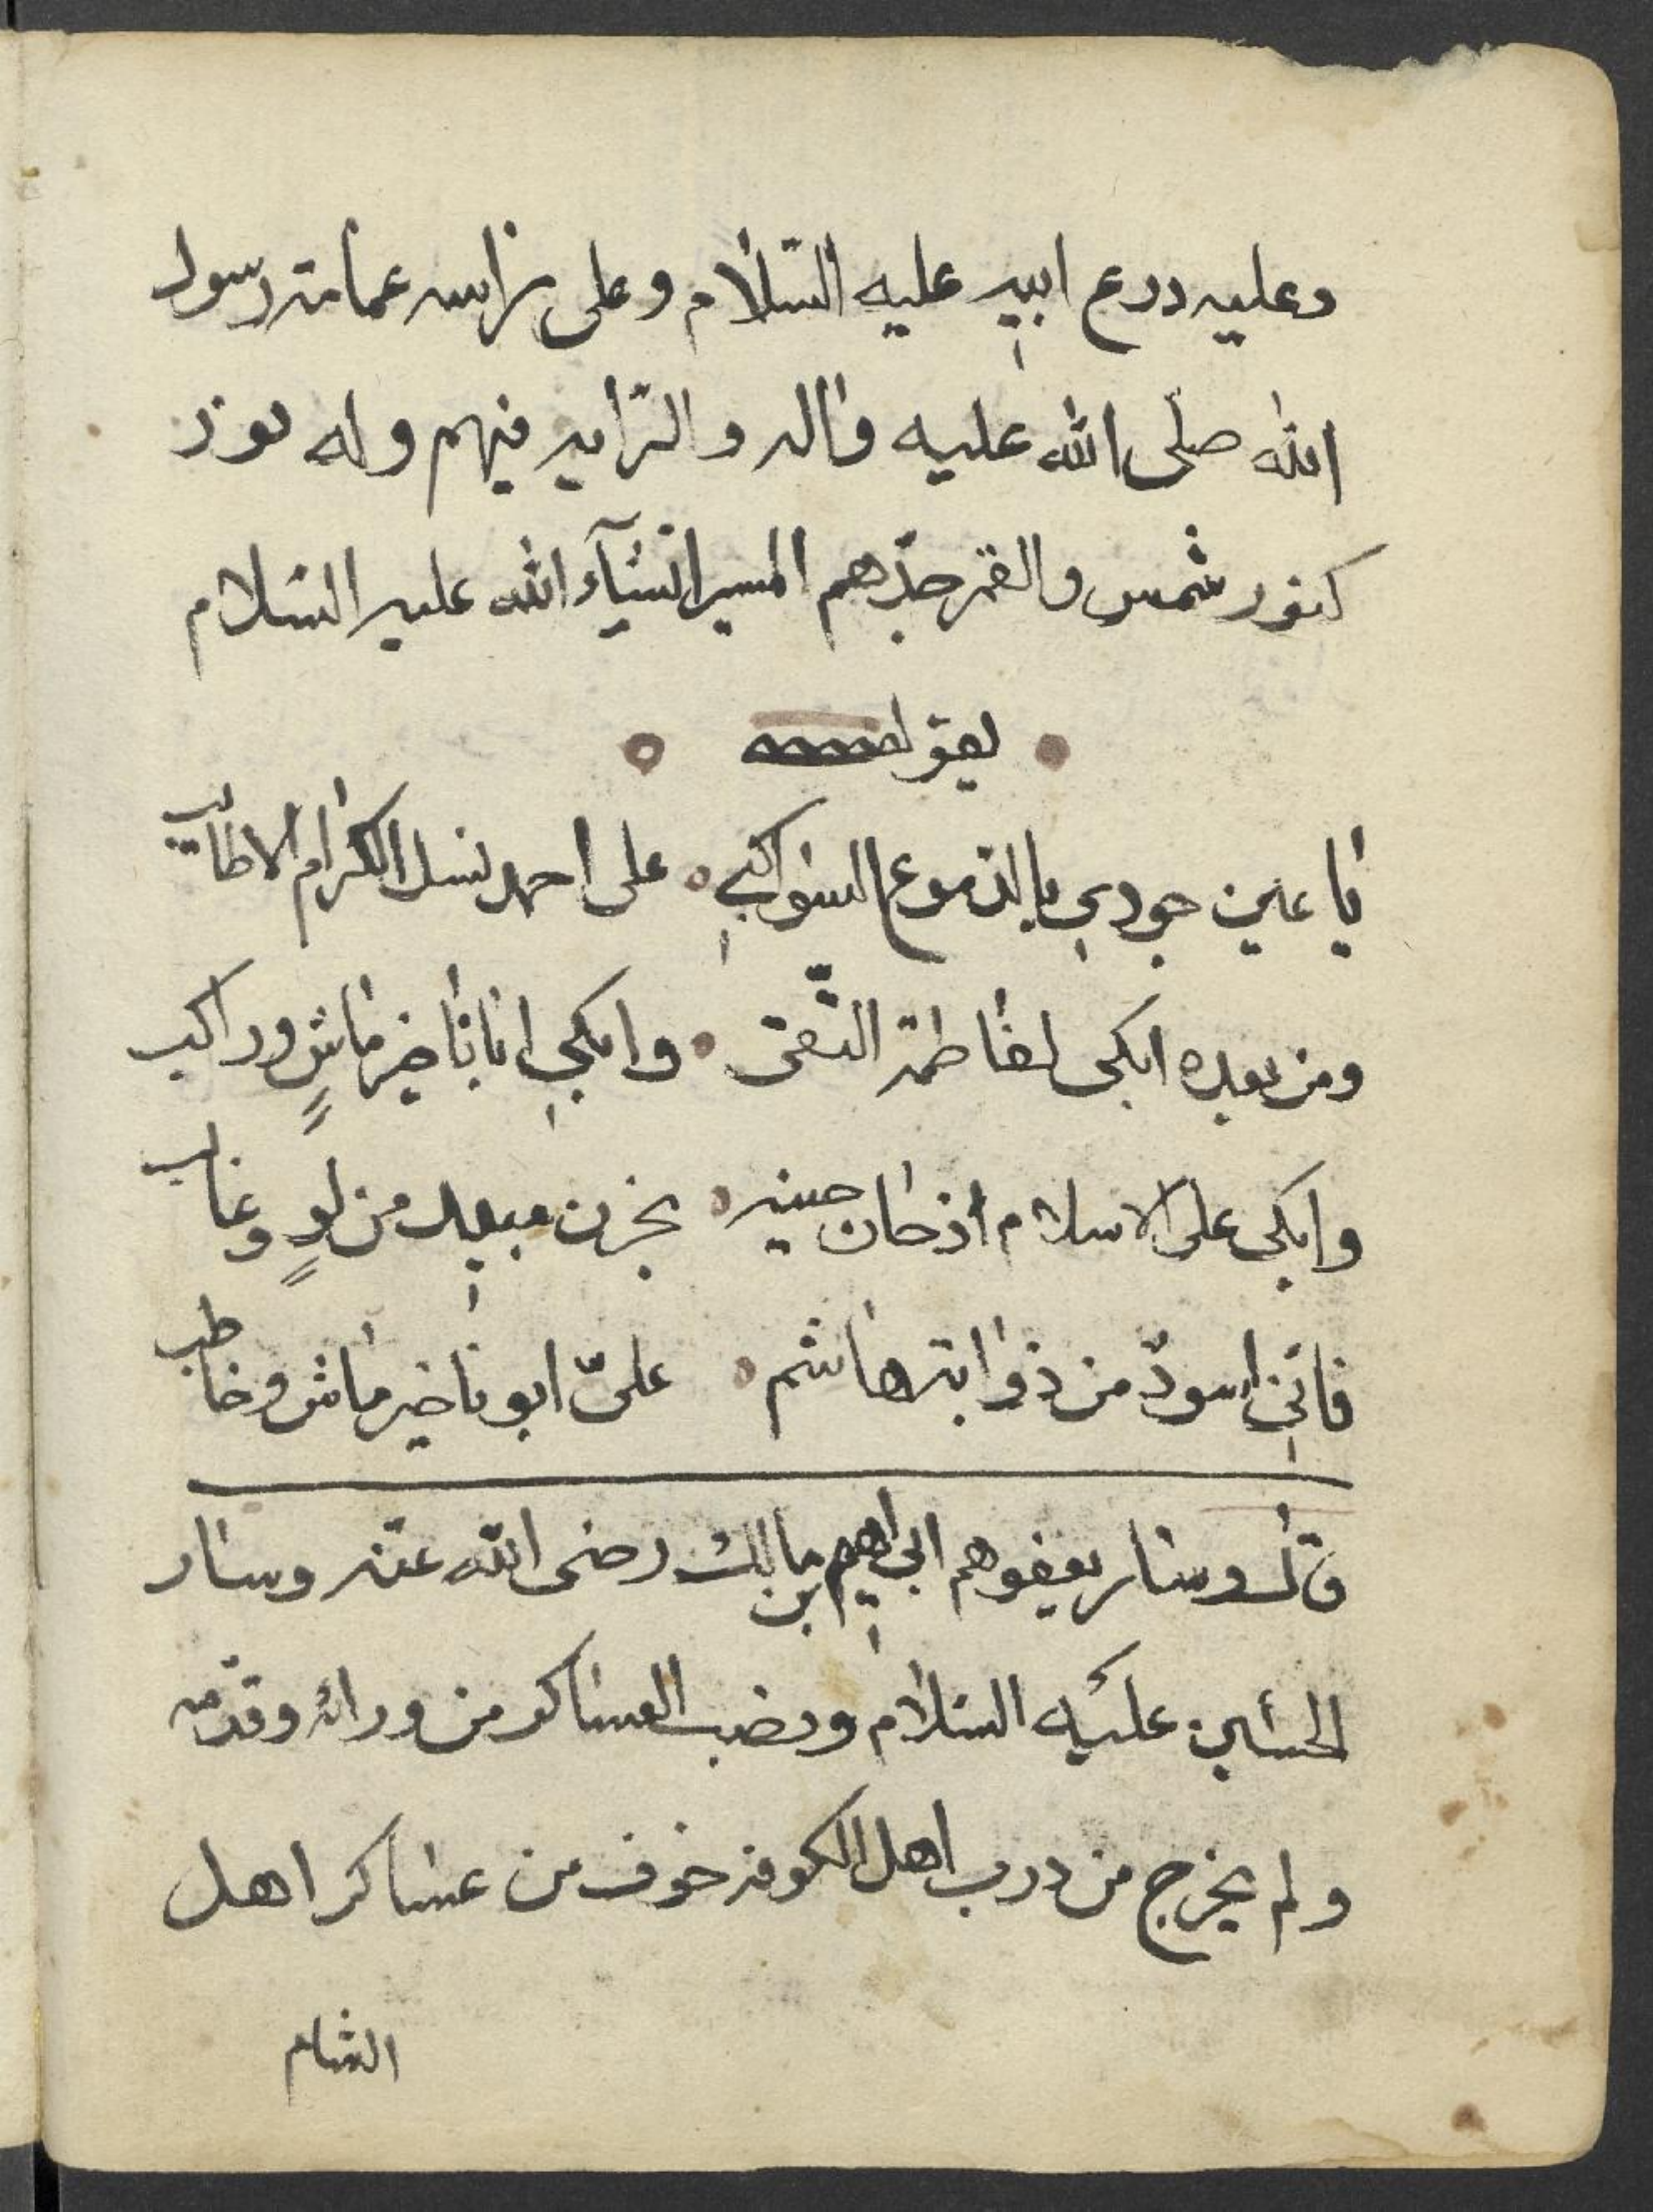 وعليه درع ابيه عليه السّلام وعلى راسه عمامة رسول
الله صلّى الله عليه واله والرّايه فيهم وله نور
كنور شمس والقمر جدّهم المسير انشآء الله عليه السّلام
يقول
يا عين جودي بالدّموع السواكب على احمد نسل الكرام الاطايب
ومن بعده ابكى لفاطمة التّقى وابكي ابانا خير ماشٍ وراكب
وابكى على الاسلام اذ حان حينه بحزن مبعد من لوٍ وغالب
فانّي اسودٌ من ذوابة هاشم علىّ ابونا خير ماش وخاطب
قال وسار يقفوهم ابراهيم بن مالك رضى الله عنه وسار
الحسين عليه السّلام ونصب العساكر من ورائه وقدّامه
ولم يخرج من درب اهل الكوفه خوف من عساكر اهل
الشام